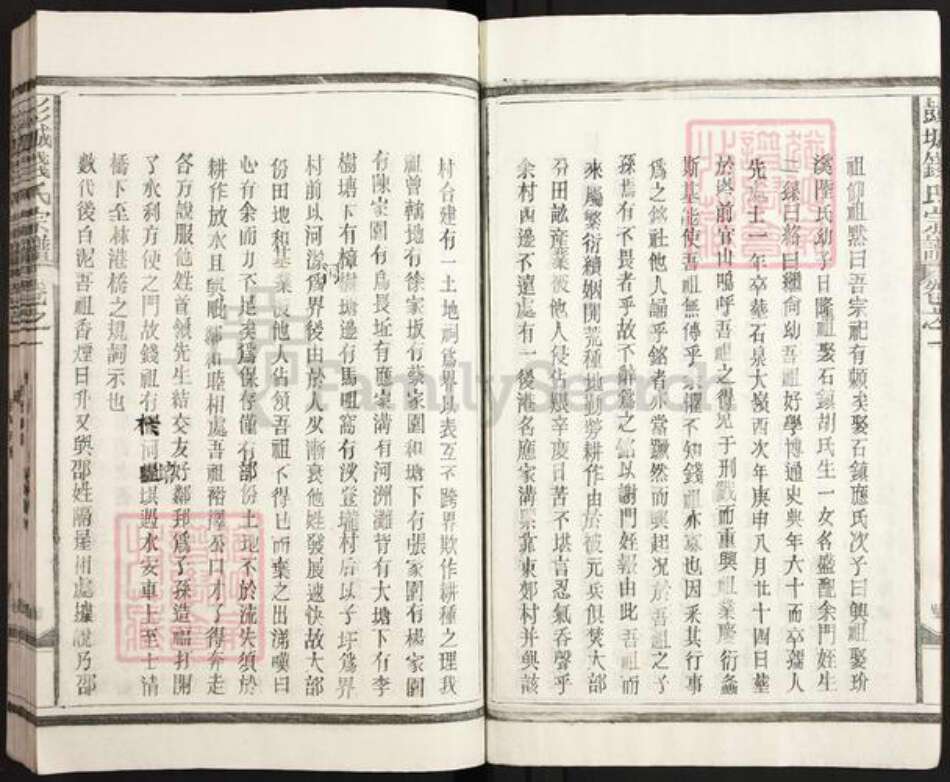 祖仰祖黙曰吾宗祀有頼矣娶石鎮應氏次子曰興祖娶玢
溪陸氏幼子曰隆祖娶石鎮胡氏生一女名盛配余門姪生
二孫曰絡曰繩尚幼吾祖好學博通史典年六十而卒孺人
先逝士一年卒塟石泉大嶺西次年庚申八月廿十四日塟
於與前官山嗚呼吾祖之得免于刑戮而重興祖業慶衍螽
斯基能使吾祖無傳乎余懼不知錢祖亦墓也因釆其行事
為之銘社他人誦乎銘者亦當躍然而興起况於吾祖之子
孫焉有不畏者乎故不辭為之銘以謝門姪報由此吾祖而
來屬繁衍續姻開荒種地勤勞耕作由於被元兵俱焚大部
分田畝産業被他人侵佔艱辛度日苦不堪言忍氣吞聲乎
余村西邊不遠處有一後港名應家溝緊靠東郊村并與該
村合建有一土地祠為界以表互不跨界欺作耕種之理我
祖曾轄地有徐家坂有蔡家園和塘下有張家園有楊家園
有陳家園有為長址有應家溝有河洲灘背有大塘下有李
樹塘下有樟樹塘邊有馬咀窩有汊笠壠村后以子圩為界
村前以河漾為界後由於人少漸衰他姓發展速快故大部
份田地和基業被他人佔領吾祖不得已而棄之出涕嘆曰
心有余而力不足矣為保存僅有部份土地不於流失須於
耕作放水且與毗鄰和睦相處吾祖裕擇公口才了得奔走
各方說服他姓首領先生結交友好鄰邦為子孫造福打開
了水利方便之門故錢祖有橙河壩堪遇水安車上至七清
橋下至林港橋之規詞示也
數代後白泥吾祖香煙日升又與邵姓隔屋相處據說乃邵
彭城錢氏宗譜
彭城錢氏宗譜
FamilySearch